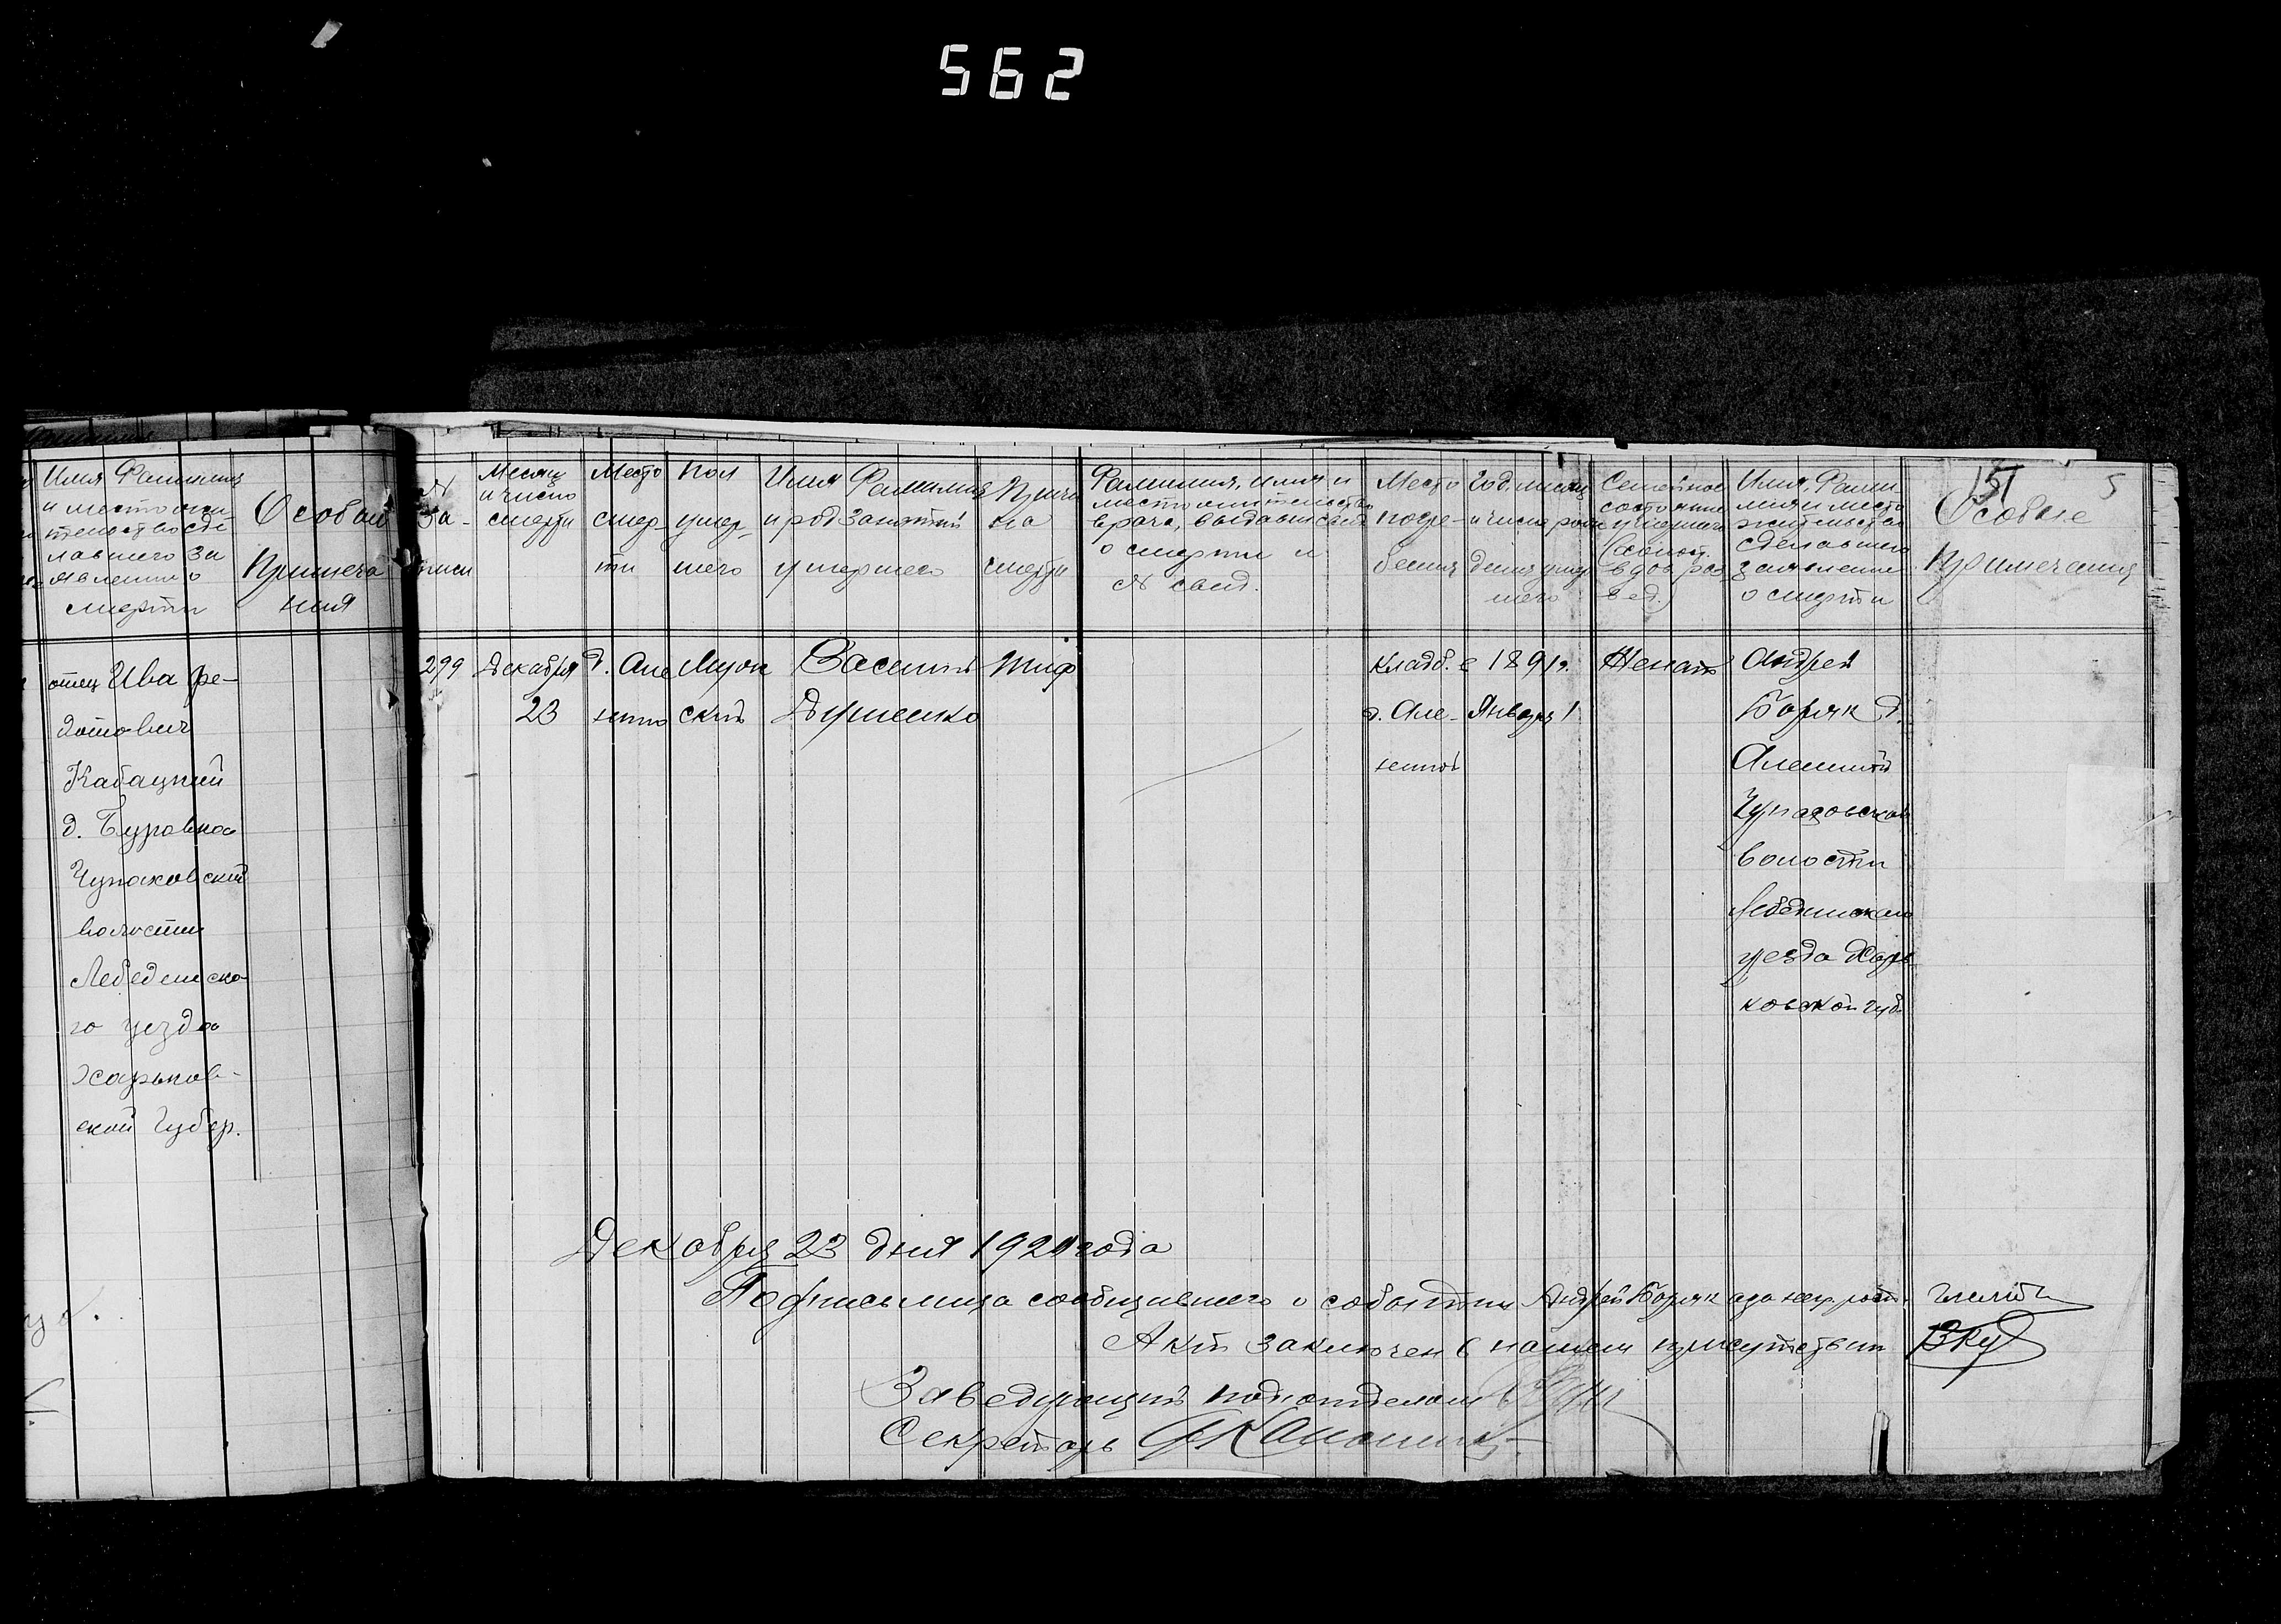 562
Имя Фамилия
и место жи
тельство сде
лавшего за
явление о
смерти
Особые
Примеча
ния
отец Ива Фе-
дотович
Кабацкий
д. Буровка
Чупаховской
волости
Лебединско-
го уезда
Харьков-
ской Губер.
151
5
№
За-
писи
Месяц
и число
смерти
Место
смер-
ти
Пол
умер-
шего
Имя Фамилия
и род занятий
умершего
Причи
на
смерти
Фамилия, имя и
местожительство
врача, выдавш свид
о смерти и
№ свид.
Место
погре-
бения
Год, месяц
и число рож
дения умер
шего
Семейное
состояние
умершего
(холост.
вдов, раз
вед.)
Имя, Фами
лия и место
жительства
сделавшего
заявление
о смерти
Особые
Примечания
299
Декабря
23
д. Але
Муж
ской
Василий
Душенко
Тиф
кладб. в
д. Але-
1891 г.
Января 1
Женат
Андрей
Боряк д.
Чупаховской
волости
Лебединского
уезда Харь-
ковской губ.
Декабря 23 дня 1920 года
Подпись лица сообщившего о событии Андрей Боряк
Акт заключен в нашем присутствии
Заведующий подотделом
Секретарь